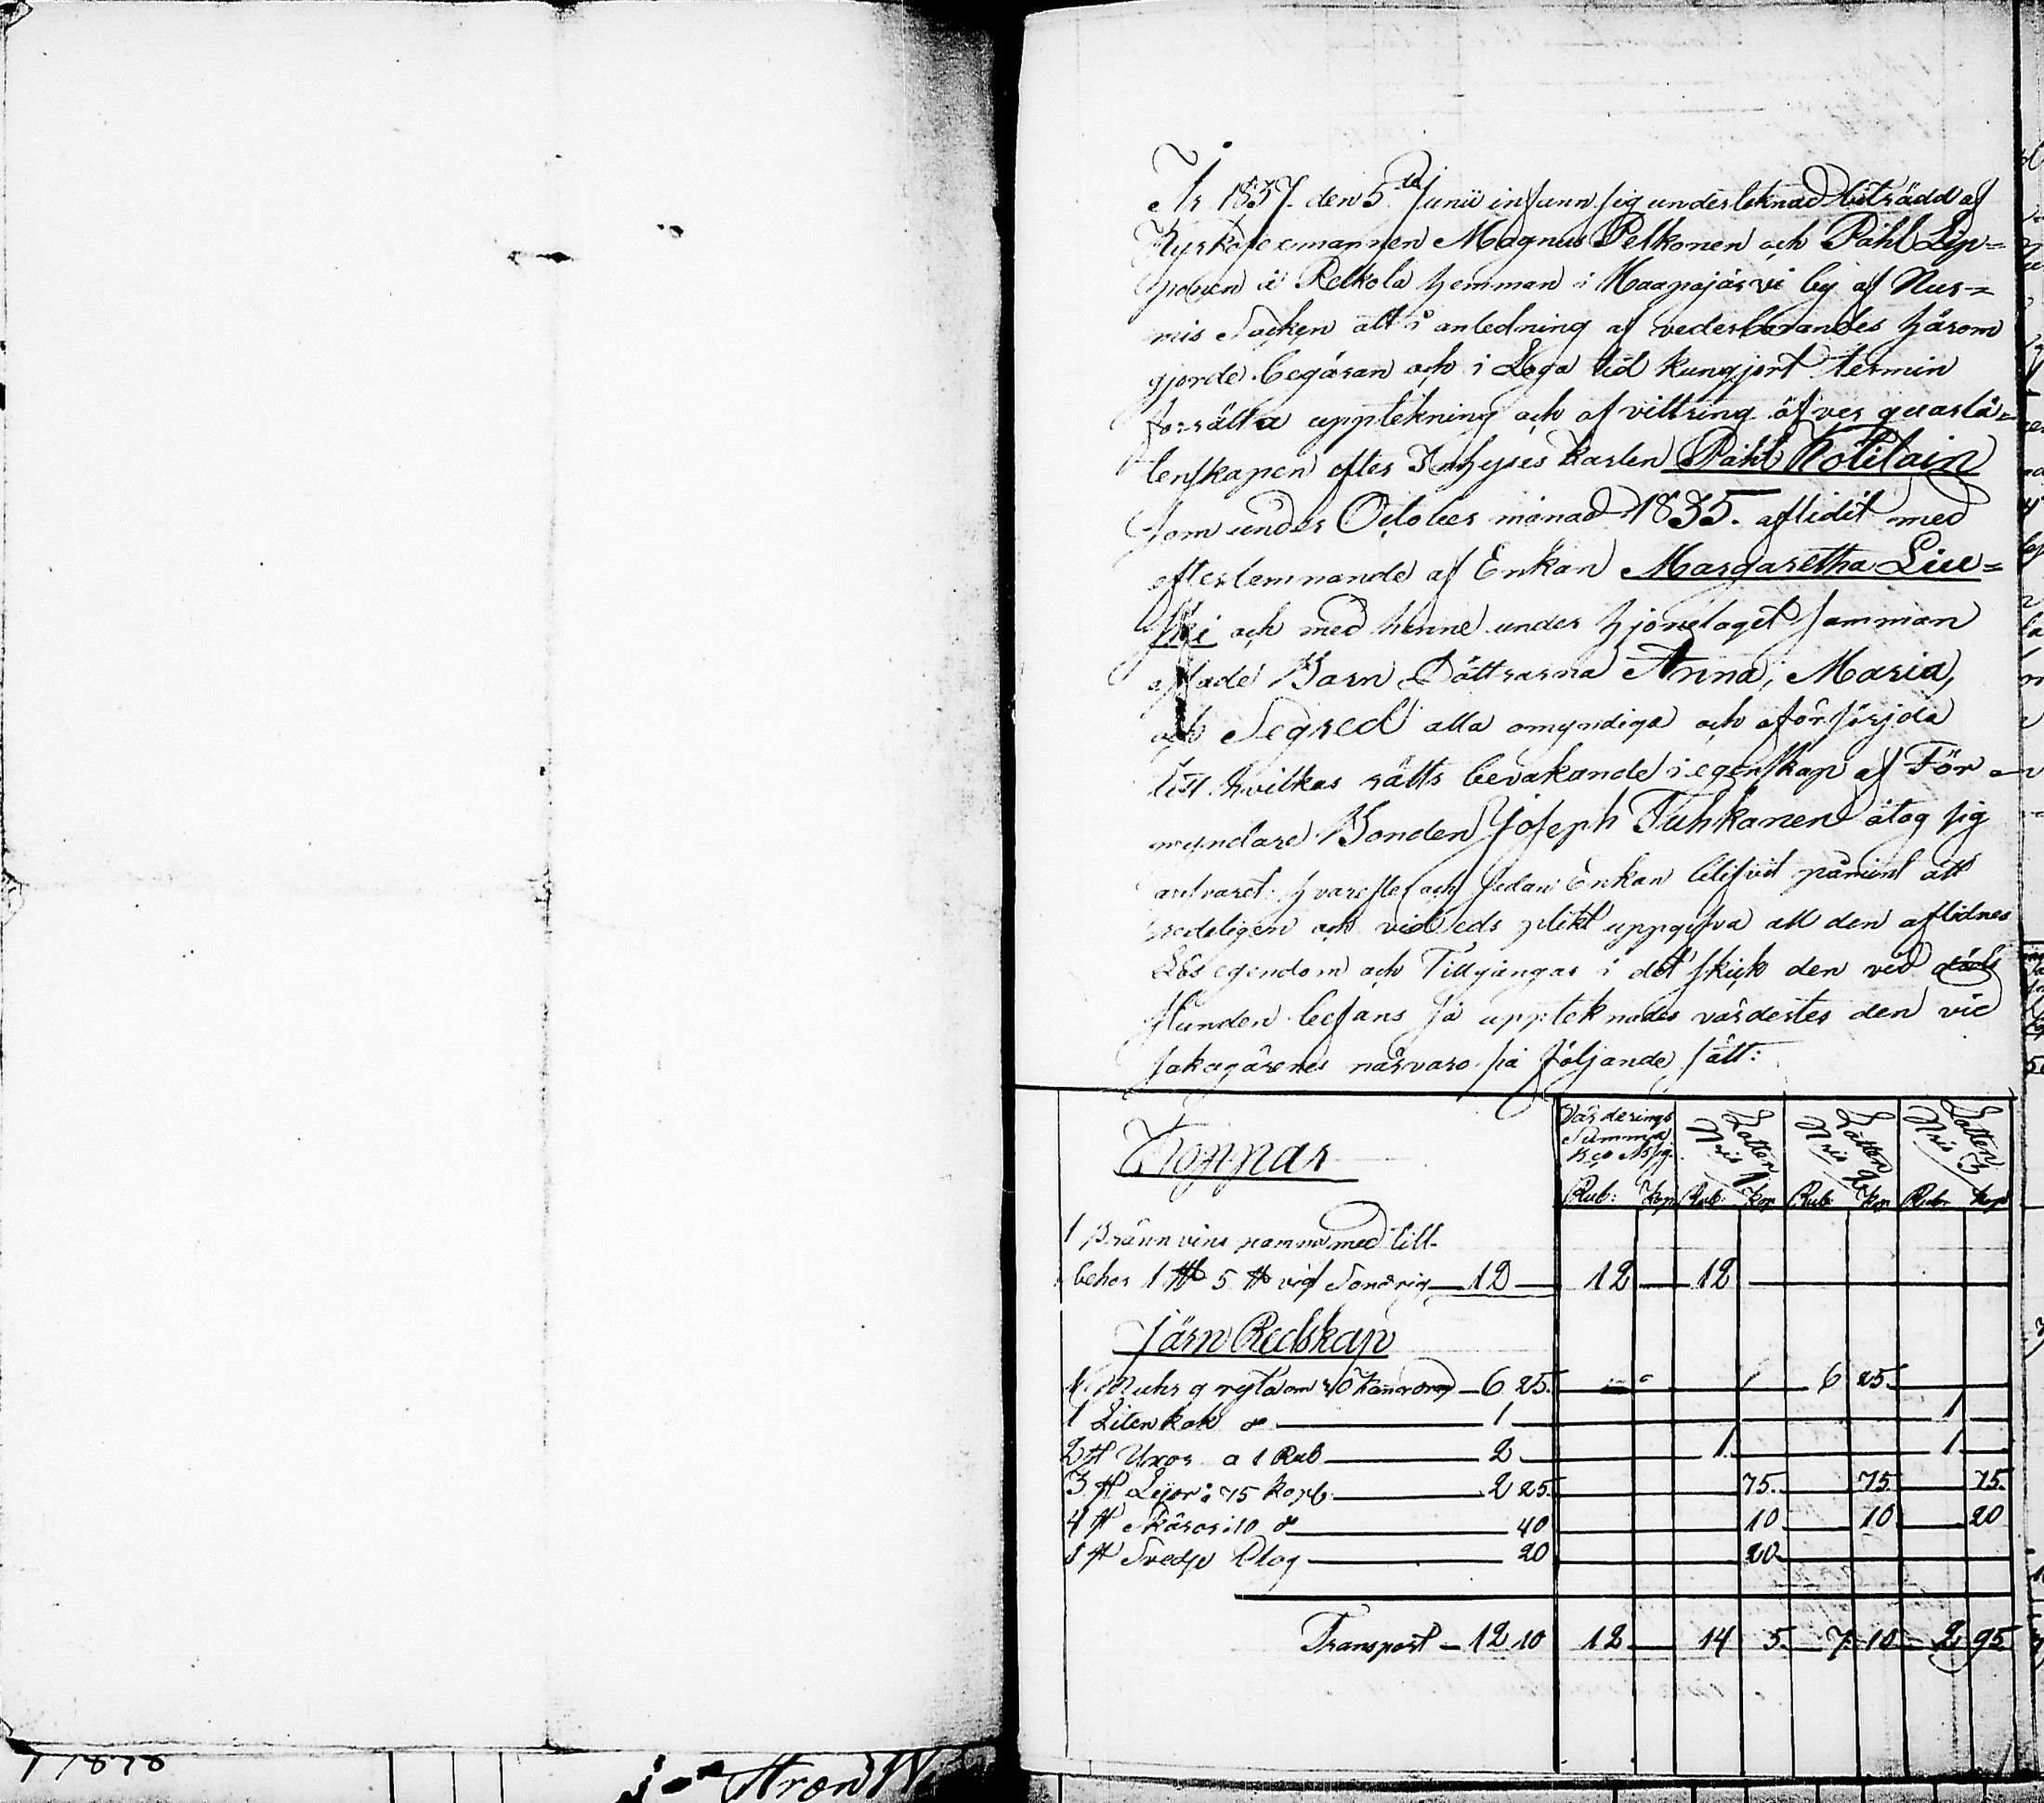 År 1837. den 5.te Junii infann sig undertecknad biträdd af
Kyrkosexmannen Magnus Pelkonen och Påhl Lip=
ponen i Relkola hemman i Haapajärvi by af Nur=
mis Socken att i anledning af vederbörandes härom
gjorde begäran och i Laga tid kungjort termin
förrätta uppteckning och afvittring öfver quarlå=
tenskapen efter Inhyses karlen Påhl Kotilain
som under October månad 1835. aflidit med
efterlemnande af Enkan Margaretha Liu=
ski och med henne under hjonelaget samman
aflade Barn Döttrarna Anna, Maria,
och Segred alla omyndiga och oförsörjda
till hvilkas rätts bevakande i egenskap af För
myndare Bonden Joseph Tuhkanen åtog sig
ansvaret: hvarefter och sedan Enkan blifvit påmint att
redeligen och vid eds plikt uppgifva all den aflidnes
Lös egendom och Tillgångar i det skick den ved döds
stunden befans så uppteknades värdertes den vid
sakegärenes närvaro på följande sätt:
Koppar
Värderings Summa Rub: Kop
Lotten Nris 1 Rub: Kop
Lotten Nris 2 Rub: Kop
Lotten Nris 3 Rub: Kop
1 Brännvins panna med till-
behör 1 5 12 12 12
Järn Redskap
1 Muhr gryta om 6 25. 6 25.
1 Liten kok do 1 1
2 st Uxor a 1 Rub 2 1. 1
3 st Lijor a 75 kop 2 25. 75. 75. 75.
4 st Skäror: 10 do 40 10 10 20
1 st Svedje Plog 20 20
Transport 12 10 12 14 5. 7. 10 2 95.